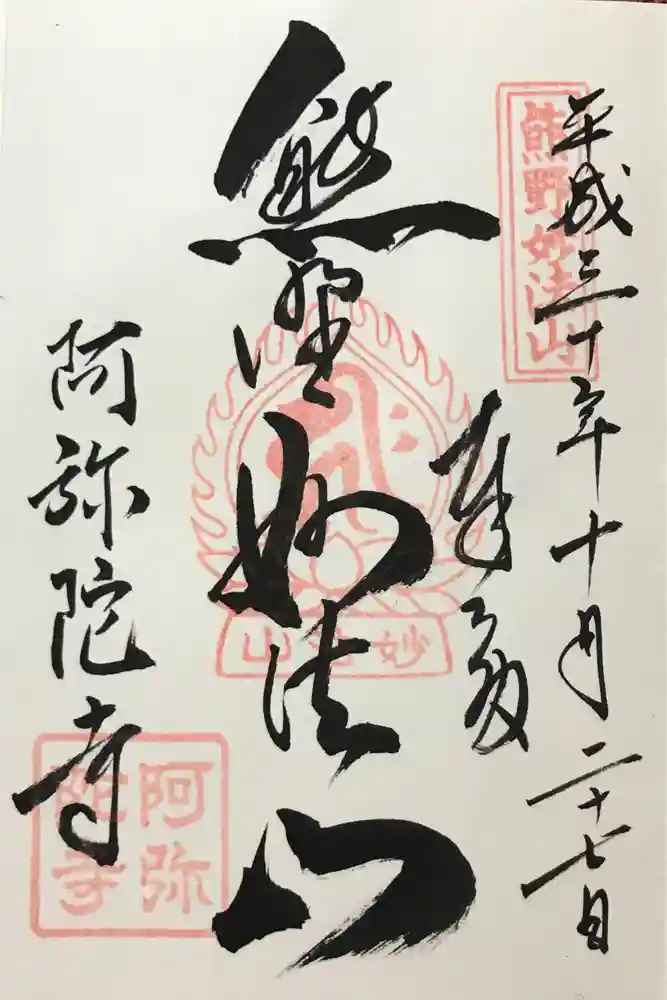 平成三十年十月二十七日
熊野妙法山
奉拝
熊野妙法山
妙法山
阿弥陀寺
阿弥陀寺